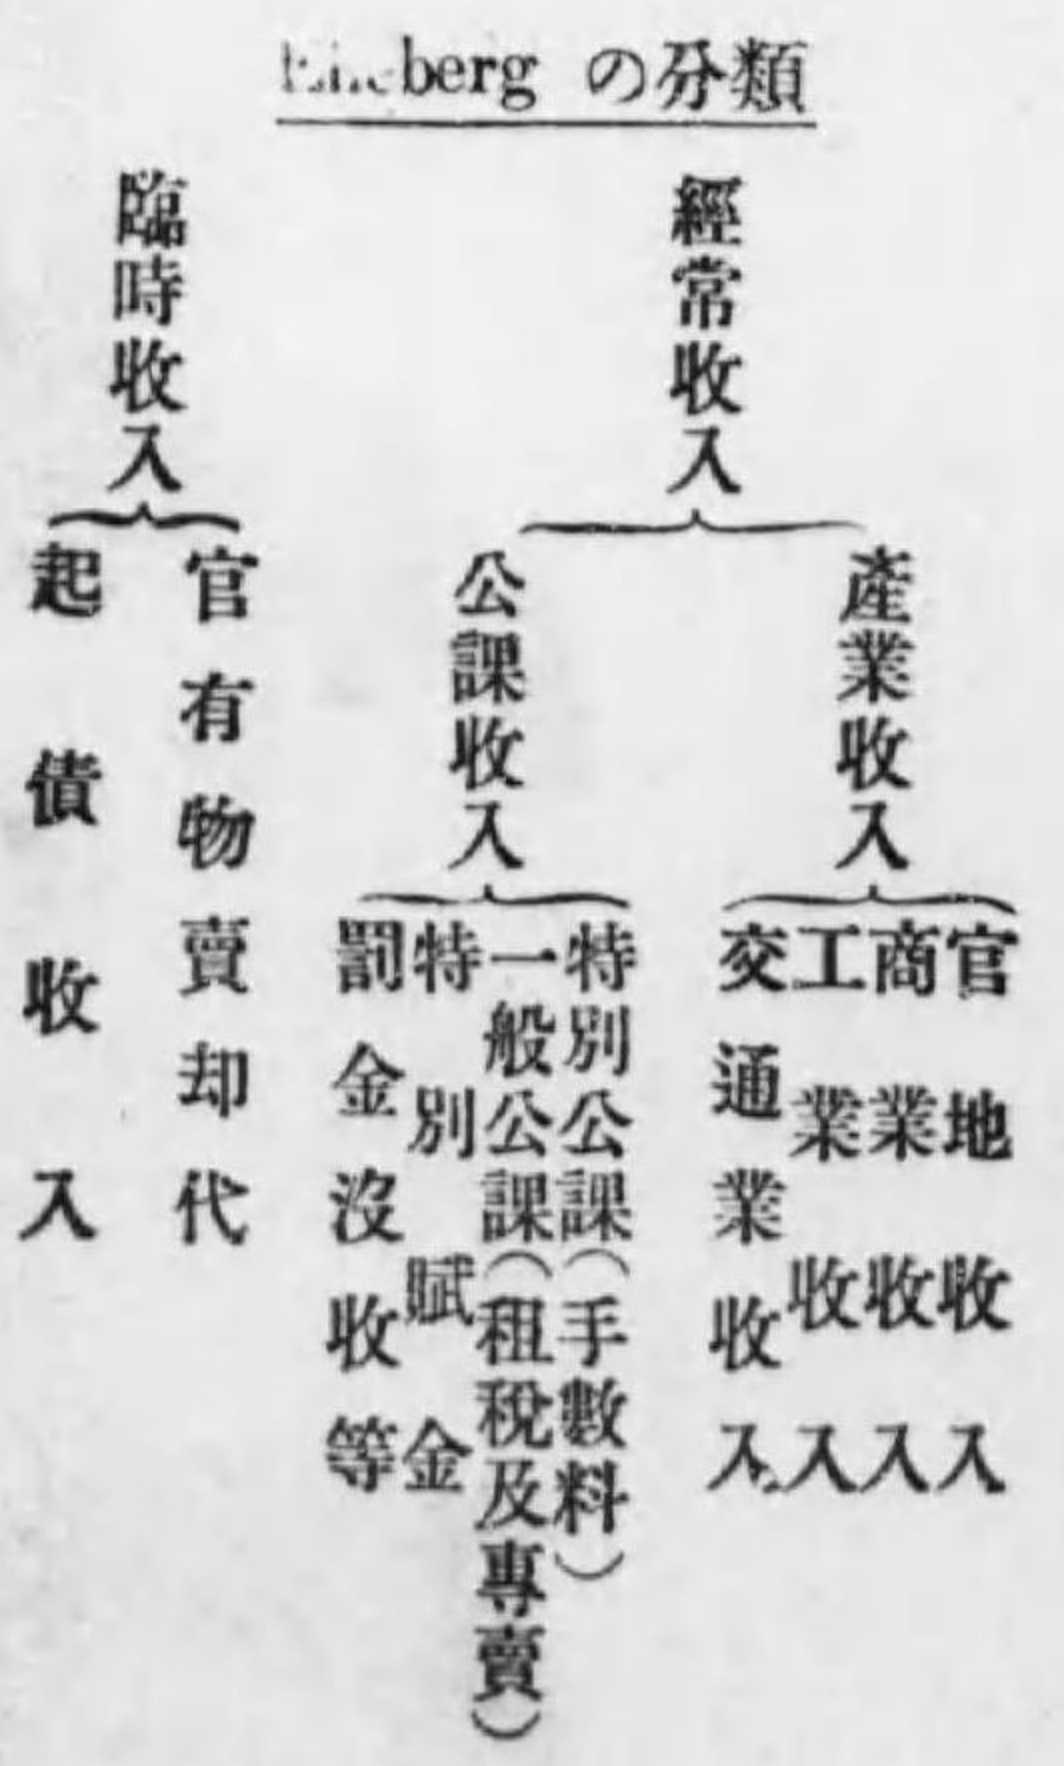 berg の分類
經常收入
產業收入
官地收入
商業收入
工業收入
交通業收入
公課收入
特別公課(手數料)
一般公課(租稅及專賣)
特別賦金
罰金沒收等
臨時收入
官有物賣却代
起債收入